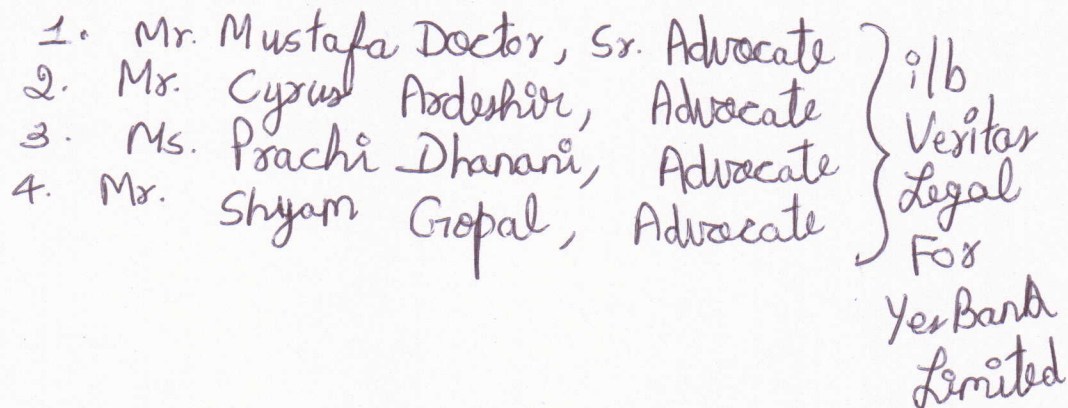 1. Mr. Mustafa Doctor, Sr. Advocate
2. Mr. Cyrus Ardeshir, Advocate
3. Ms. Prachi Dhanani, Advocate
4. Mr. Shyam Gopal, Advocate
i/b
Veritas
Legal
For
Yes Bank
Limited